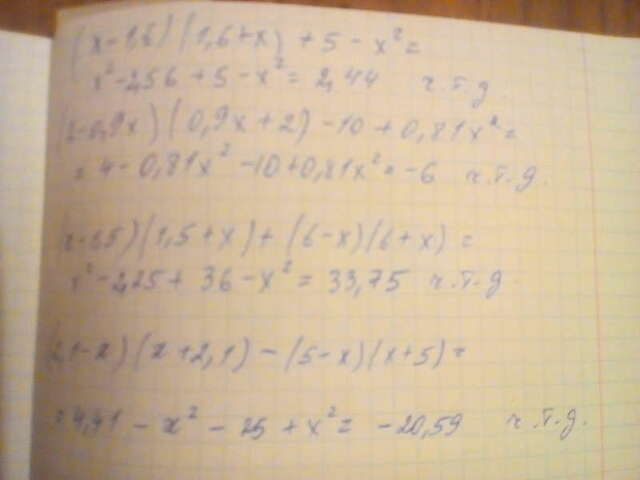 (x-1,6)(1,6+x)+5-x²=
x²-2,56+5-x²=2,44 ч.т.д
(2-0,9x)(0,9x+2)-10+0,81x²=
=4-0,81x²-10+0,81x²=-6 ч.т.д.
(x-1,5)(1,5+x)+(6-x)(6+x)=
x²-2,25+36-x²=33,75 ч.т.д
(2,1-x)(x+2,1)-(5-x)(x+5)=
=4,41-x²-25+x²=-20,59 ч.т.д.